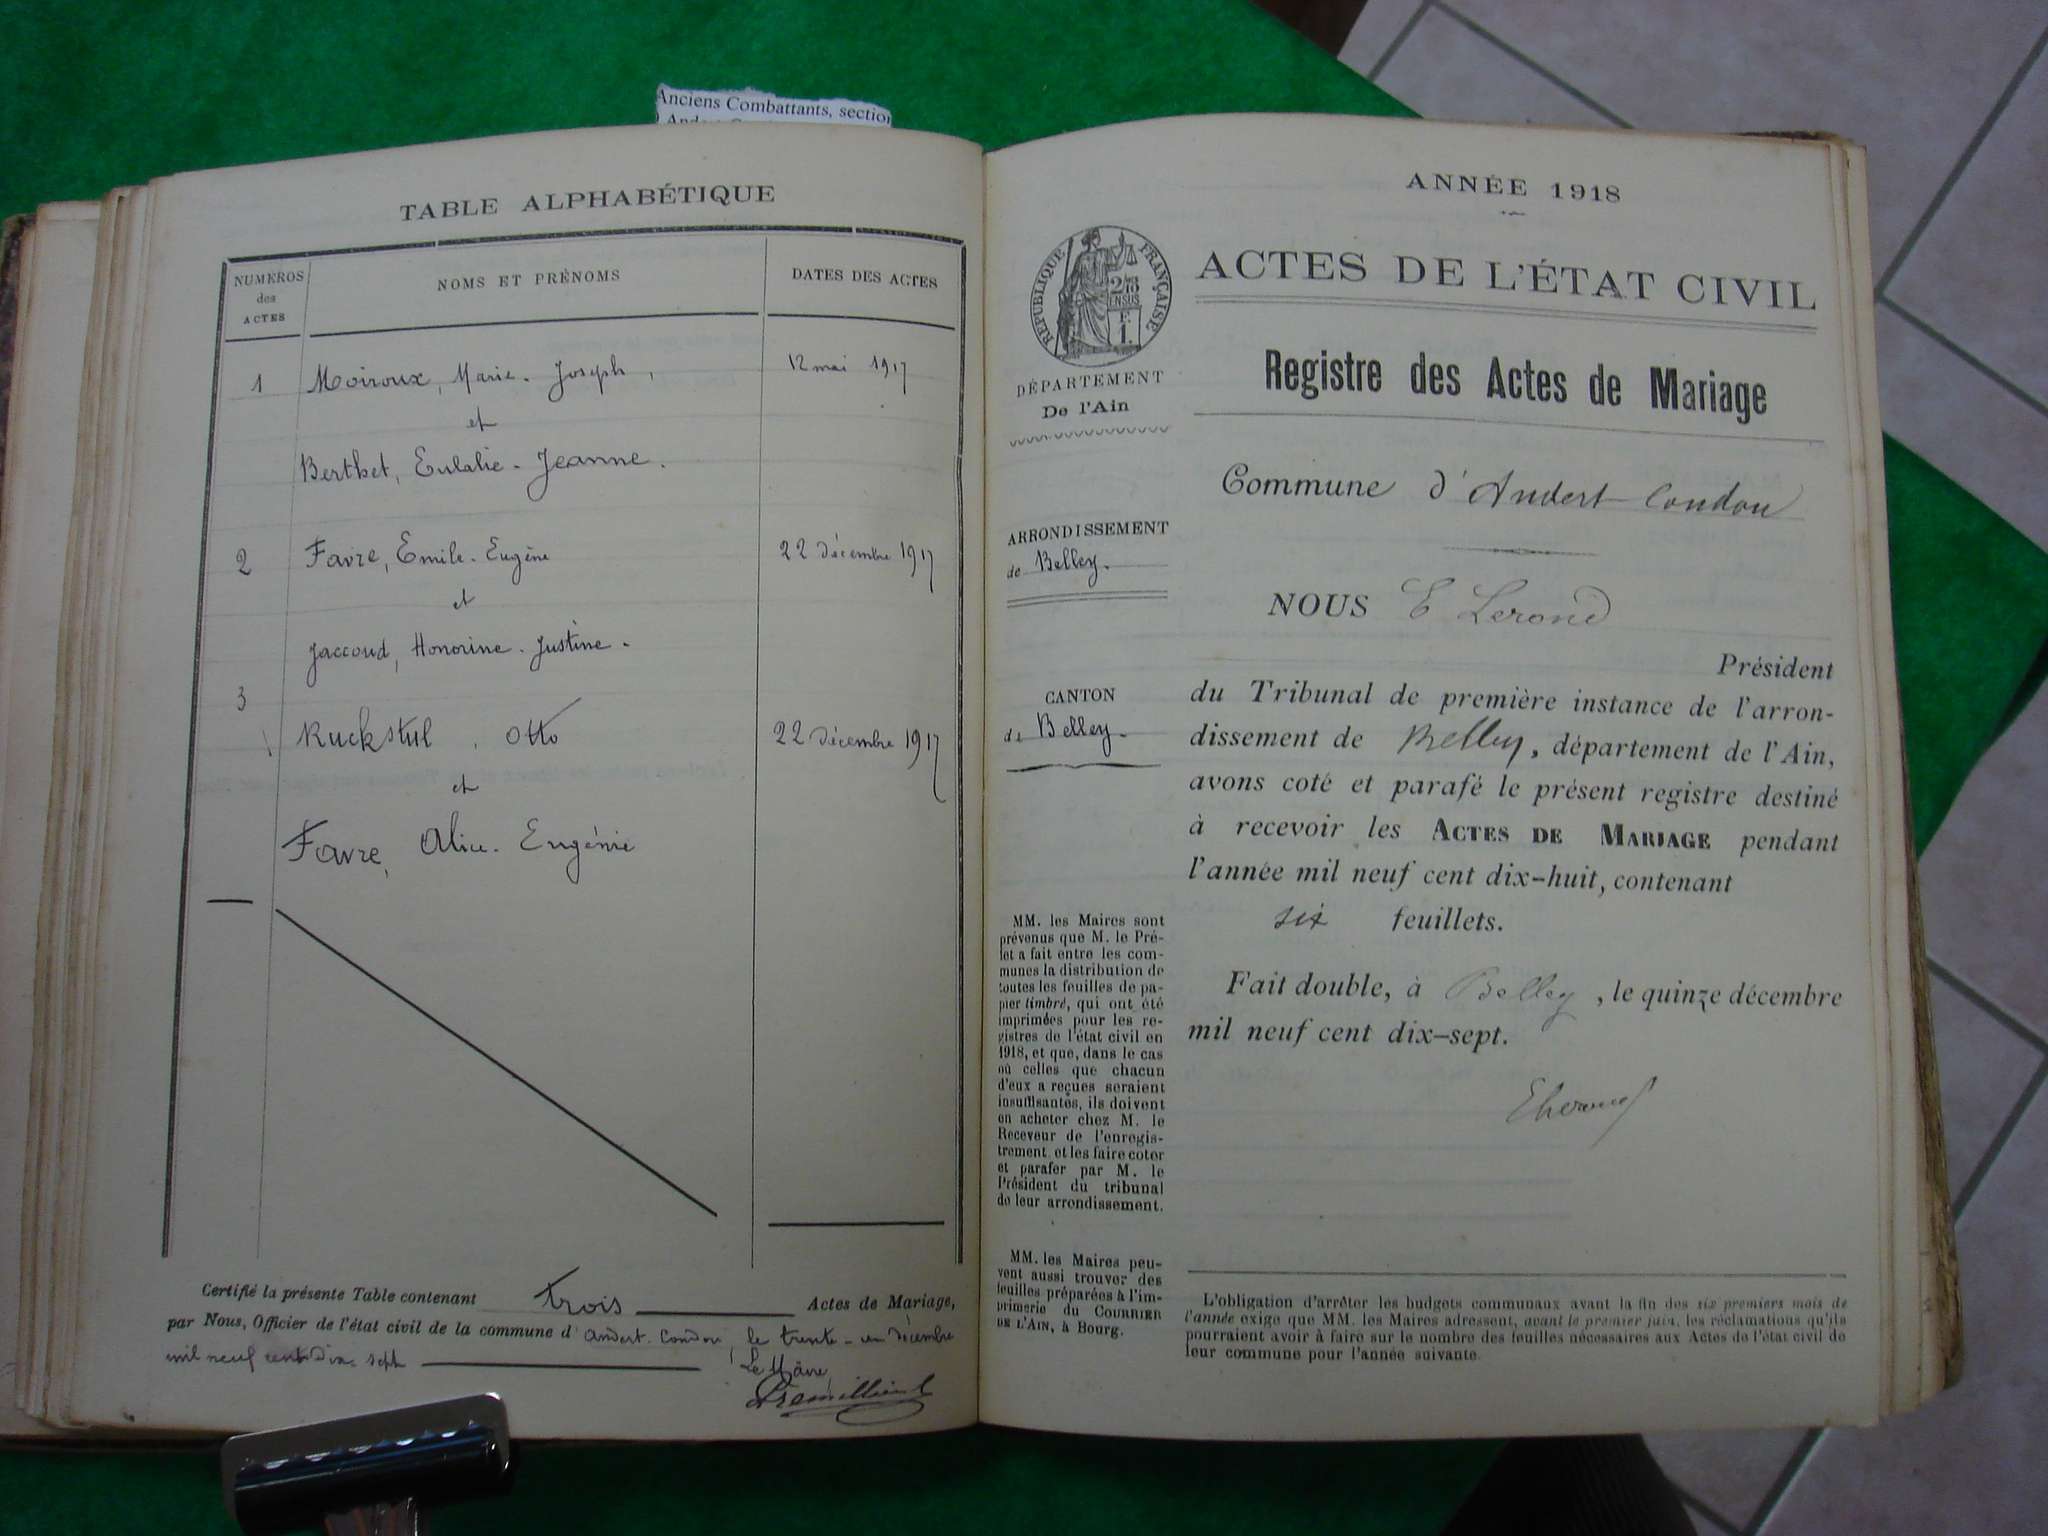 Anciens Combattants, section
TABLE ALPHABÉTIQUE
NUMÉROS
des
ACTES
NOMS ET PRÉNOMS
DATES DES ACTES
1
Moiroux, Marie-Joseph,
12 mai 1917
et
Berthet, Eulalie-Jeanne.
2
Favre, Emile-Eugène
22 décembre 1917
et
Jaccoud, Honorine-Justine.
3
Ruckstul, Otto
22 décembre 1917
et
Favre, Alice-Eugénie
Certifié la présente Table contenant trois Actes de Mariage,
par Nous, Officier de l'état civil de la commune d'Andert-Condon, le trente-un décembre
mil neuf cent dix-sept
Le Maire,
ANNÉE 1918
RÉPUBLIQUE FRANÇAISE
ACTES DE L'ÉTAT CIVIL
Registre des Actes de Mariage
DÉPARTEMENT
De l'Ain
Commune d'Andert-Condon
ARRONDISSEMENT
de Belley.
NOUS E Lerond
Président
CANTON
de Belley.
du Tribunal de première instance de l'arron-
dissement de Belley, département de l'Ain,
avons coté et parafé le présent registre destiné
à recevoir les ACTES DE MARIAGE pendant
l'année mil neuf cent dix-huit, contenant
six feuillets.
Fait double, à Belley, le quinze décembre
mil neuf cent dix-sept.
MM. les Maires sont
prévenus que M. le Pré-
fet a fait entre les com-
munes la distribution de
toutes les feuilles de pa-
pier timbré, qui ont été
imprimées pour les re-
gistres de l'état civil en
1918, et que, dans le cas
où celles que chacun
d'eux a reçues seraient
insuffisantes, ils doivent
en acheter chez M. le
Receveur de l'enregis-
trement et les faire coter
et parafer par M. le
Président du tribunal
de leur arrondissement.
MM. les Maires peu-
vent aussi trouver des
feuilles préparées à l'im-
primerie du COURRIER
DE L'AIN, à Bourg.
L'obligation d'arrêter les budgets communaux avant la fin des six premiers mois de
l'année exige que MM. les Maires adressent, avant le premier juin, les réclamations qu'ils
pourraient avoir à faire sur le nombre des feuilles nécessaires aux Actes de l'état civil de
leur commune pour l'année suivante.